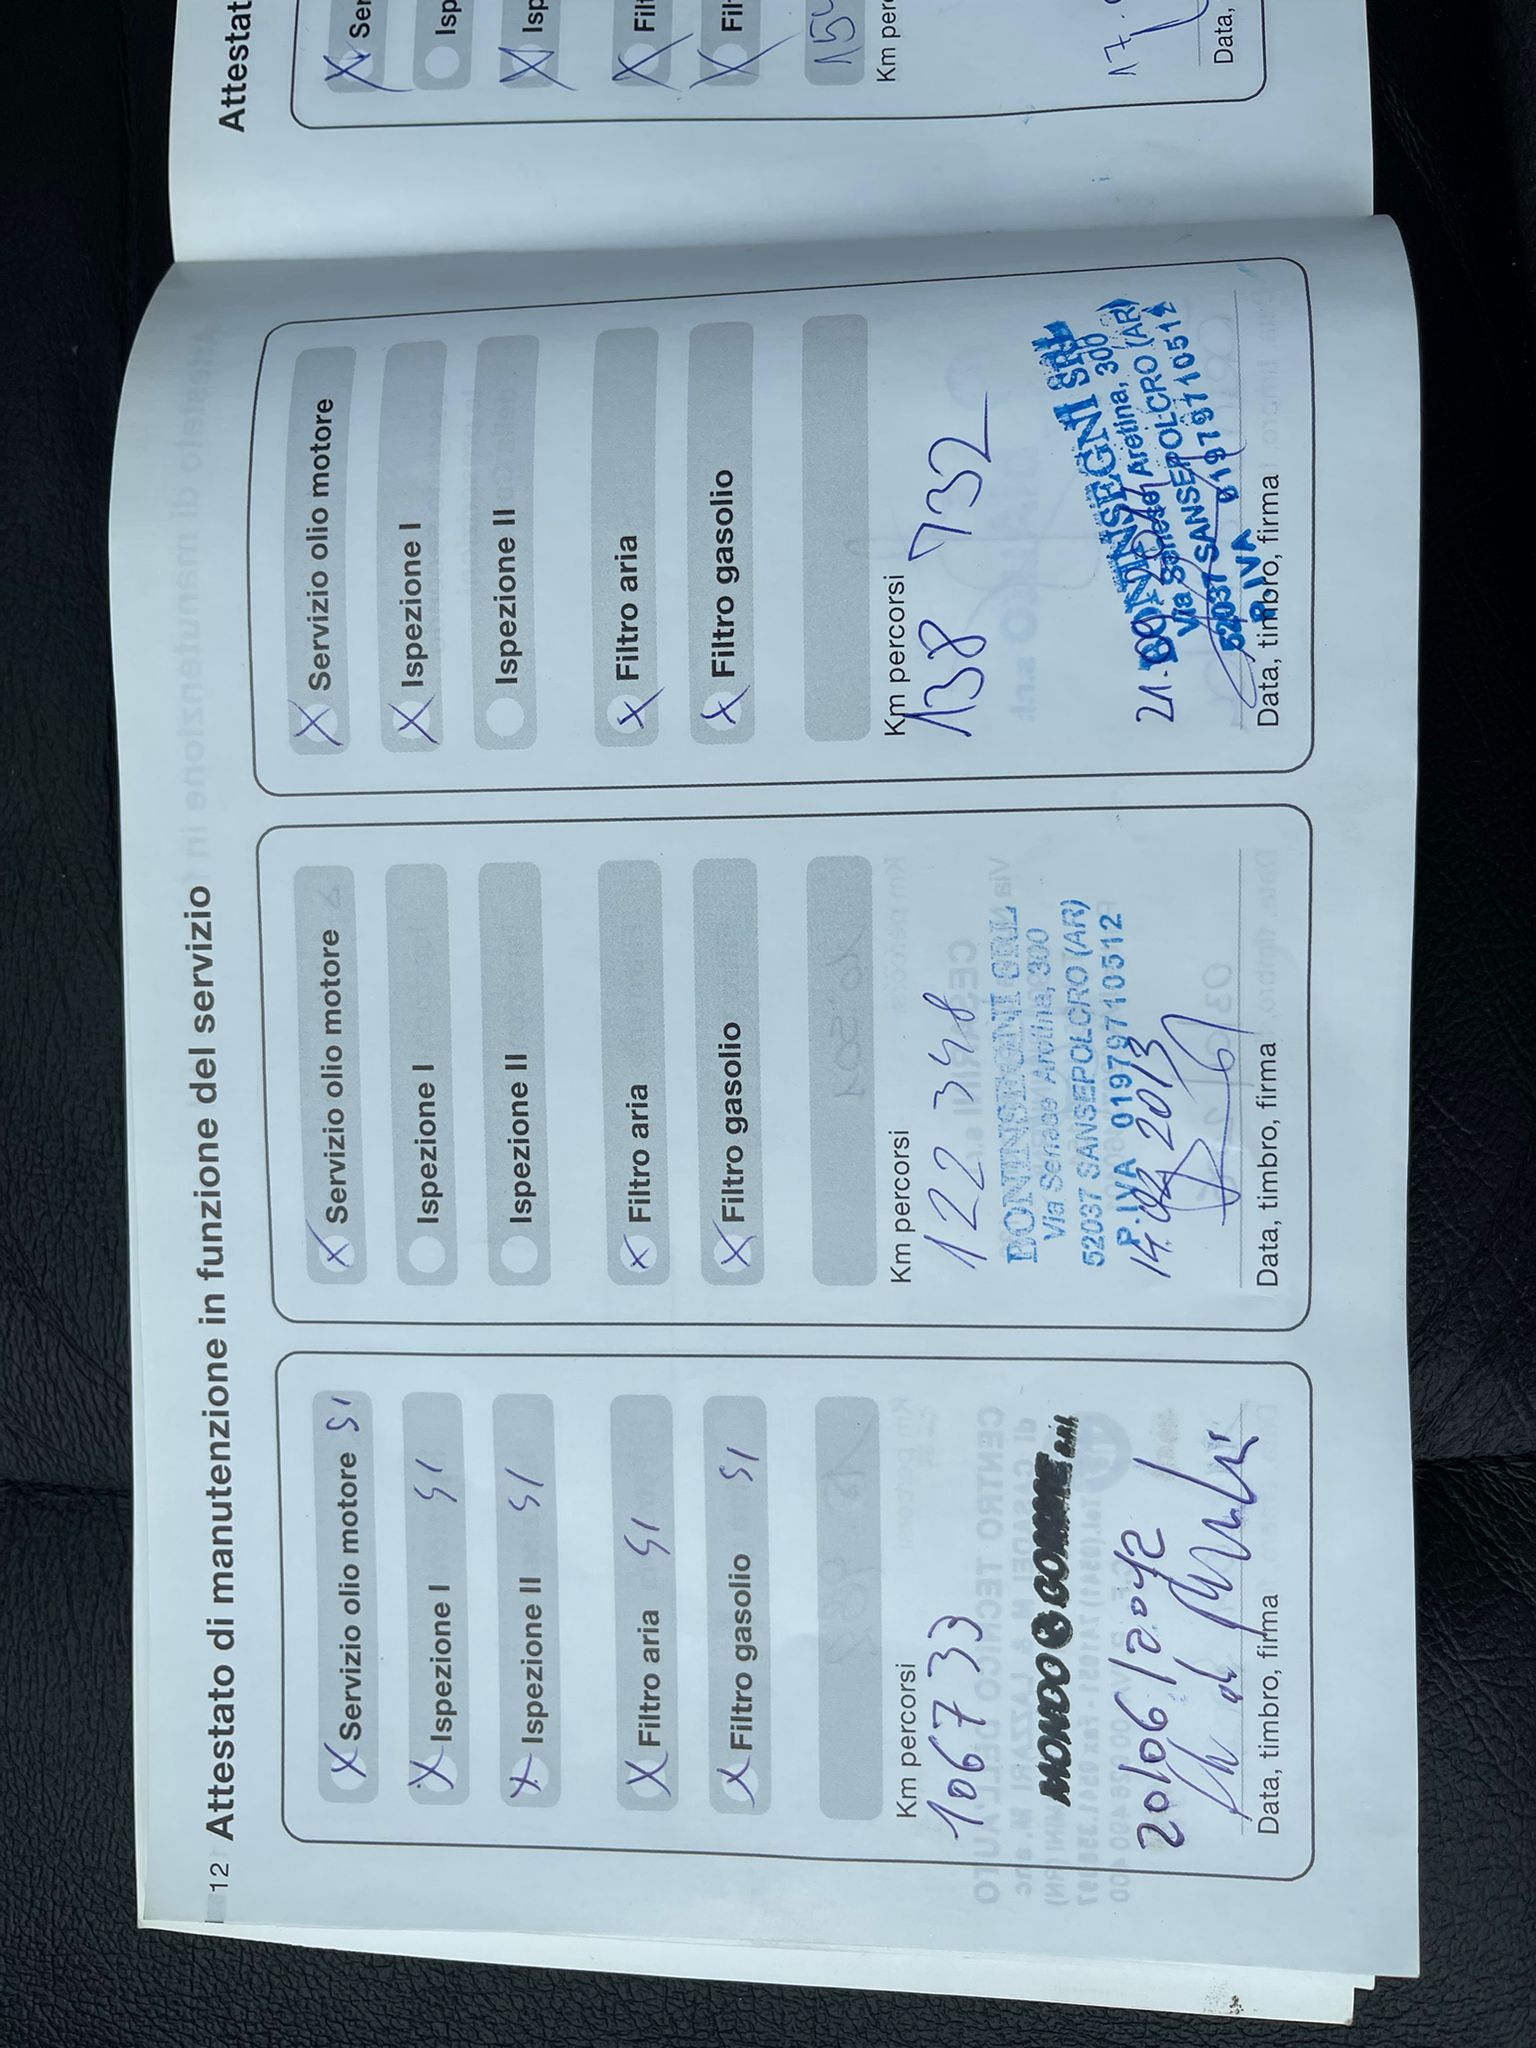 12 Attestato di manutenzione in funzione del servizio
X Servizio olio motore SI
X Ispezione I SI
X Ispezione II SI
X Filtro aria SI
X Filtro gasolio SI
Km percorsi
106733
MONDO GOMME S.R.L.
20/06/2012
Data, timbro, firma
X Servizio olio motore
Ispezione I
Ispezione II
X Filtro aria
X Filtro gasolio
Km percorsi
122 348
BONINSEGNI SRL
Via Senese Aretina, 300
52037 SANSEPOLCRO (AR)
P.IVA 01979710512
14. 2013
Data, timbro, firma
X Servizio olio motore
X Ispezione I
Ispezione II
X Filtro aria
X Filtro gasolio
Km percorsi
138 732
BONINSEGNI SRL
Via Senese Aretina, 300
52037 SANSEPOLCRO (AR)
P.IVA 01979710512
21.
Data, timbro, firma
Attestat
X Ser
Isp
X Isp
X Filt
X Filt
154
Km perc
17.
Data,